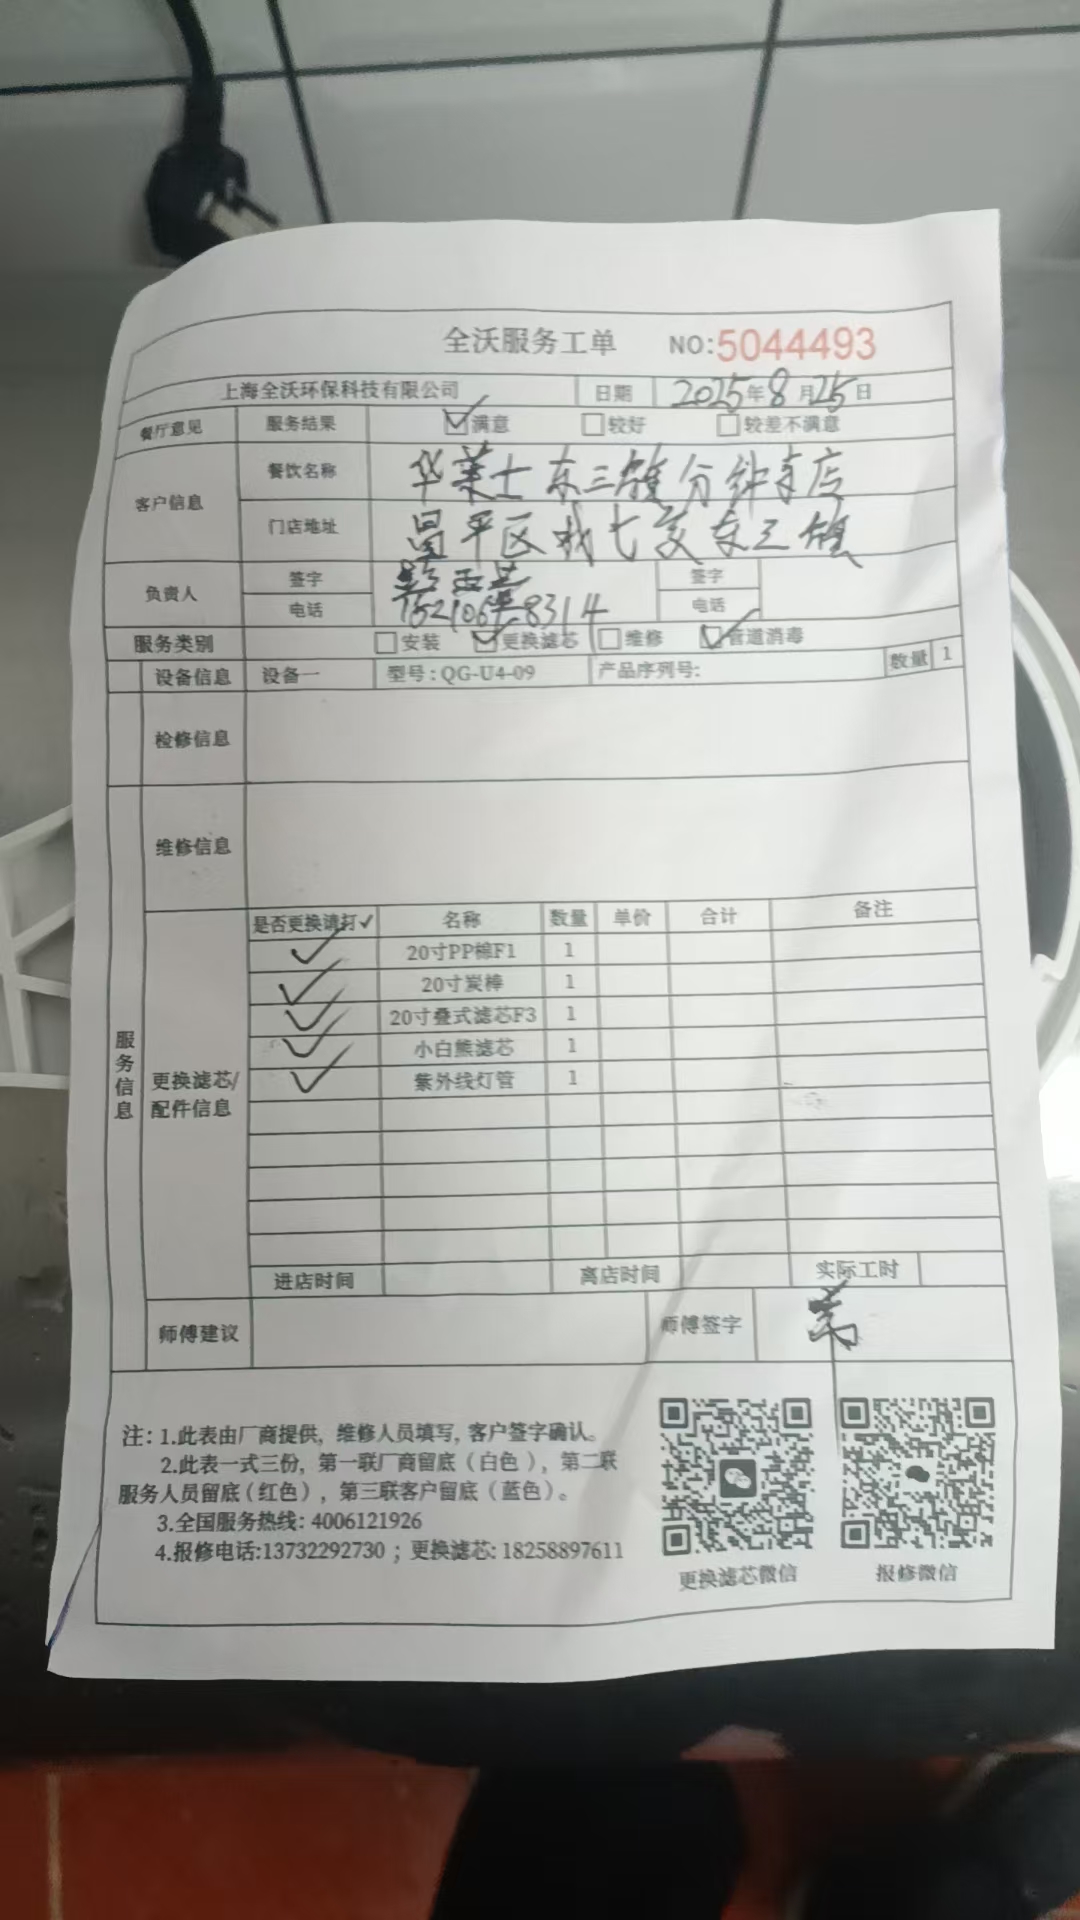 全沃服务工单 NO:5044493
上海全沃环保科技有限公司 日期 2025年8月25日
餐厅意见 服务结果 ☑满意 □较好 □较差不满意
客户信息 餐饮名称 华莱士东三旗分钟寺店
门店地址 昌平区 七 东三旗
负责人 签字 签字
电话 15210618314 电话
服务类别 □安装 ☑更换滤芯 □维修 ☑管道消毒
设备信息 设备一 型号:QG-U4-09 产品序列号: 数量 1
检修信息
维修信息
服务信息
更换滤芯/配件信息
是否更换请打✓ 名称 数量 单价 合计 备注
✓ 20寸PP棉F1 1
✓ 20寸炭棒 1
✓ 20寸叠式滤芯F3 1
✓ 小白熊滤芯 1
✓ 紫外线灯管 1
进店时间 离店时间 实际工时
师傅建议 师傅签字
注:1.此表由厂商提供,维修人员填写,客户签字确认。
2.此表一式三份,第一联厂商留底(白色),第二联
服务人员留底(红色),第三联客户留底(蓝色)。
3.全国服务热线:4006121926
4.报修电话:13732292730;更换滤芯:18258897611
更换滤芯微信 报修微信